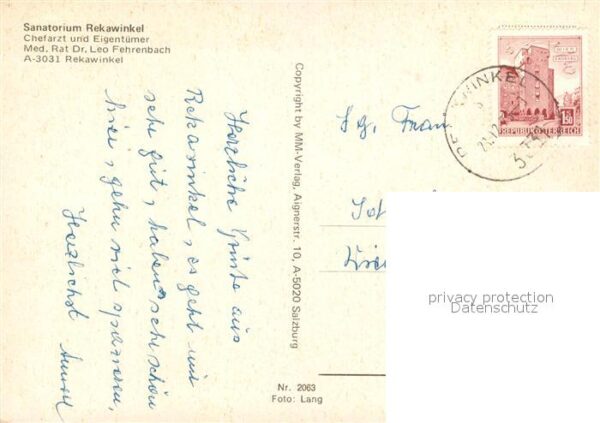 Sanatorium Rekawinkel
Chefarzt und Eigentümer
Med. Rat Dr. Leo Fehrenbach
A-3031 Rekawinkel
Herzliche Grüße aus
Rekawinkel, es geht mir
sehr gut, haben sehr schön
hier, gehn viel spazieren,
Herzlichst
Copyright by MM-Verlag, Aignerstr. 10, A-5020 Salzburg
Nr. 2063
Foto: Lang
REKAWINKEL
1.50
REPUBLIK ÖSTERREICH
Sg. Frau
privacy protection
Datenschutz